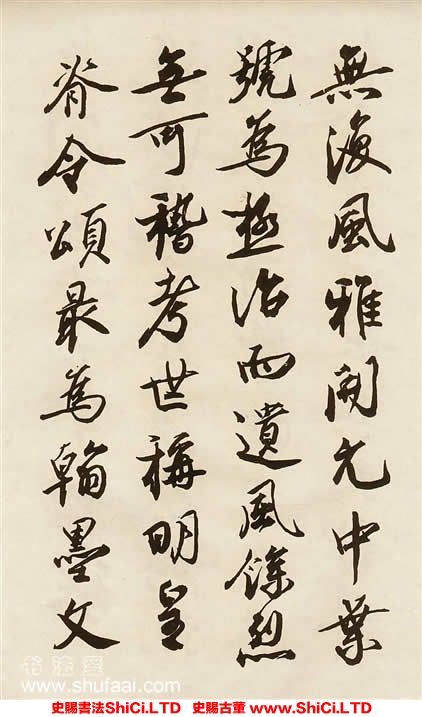 無復風雅開元中葉
號為極治而遺風餘烈
無可稽考世稱明皇
脊令頌最為翰墨文
书法爱
www.shufaai.com
史賜書法ShiCi.LTD 史賜古董 www.ShiCi.LTD